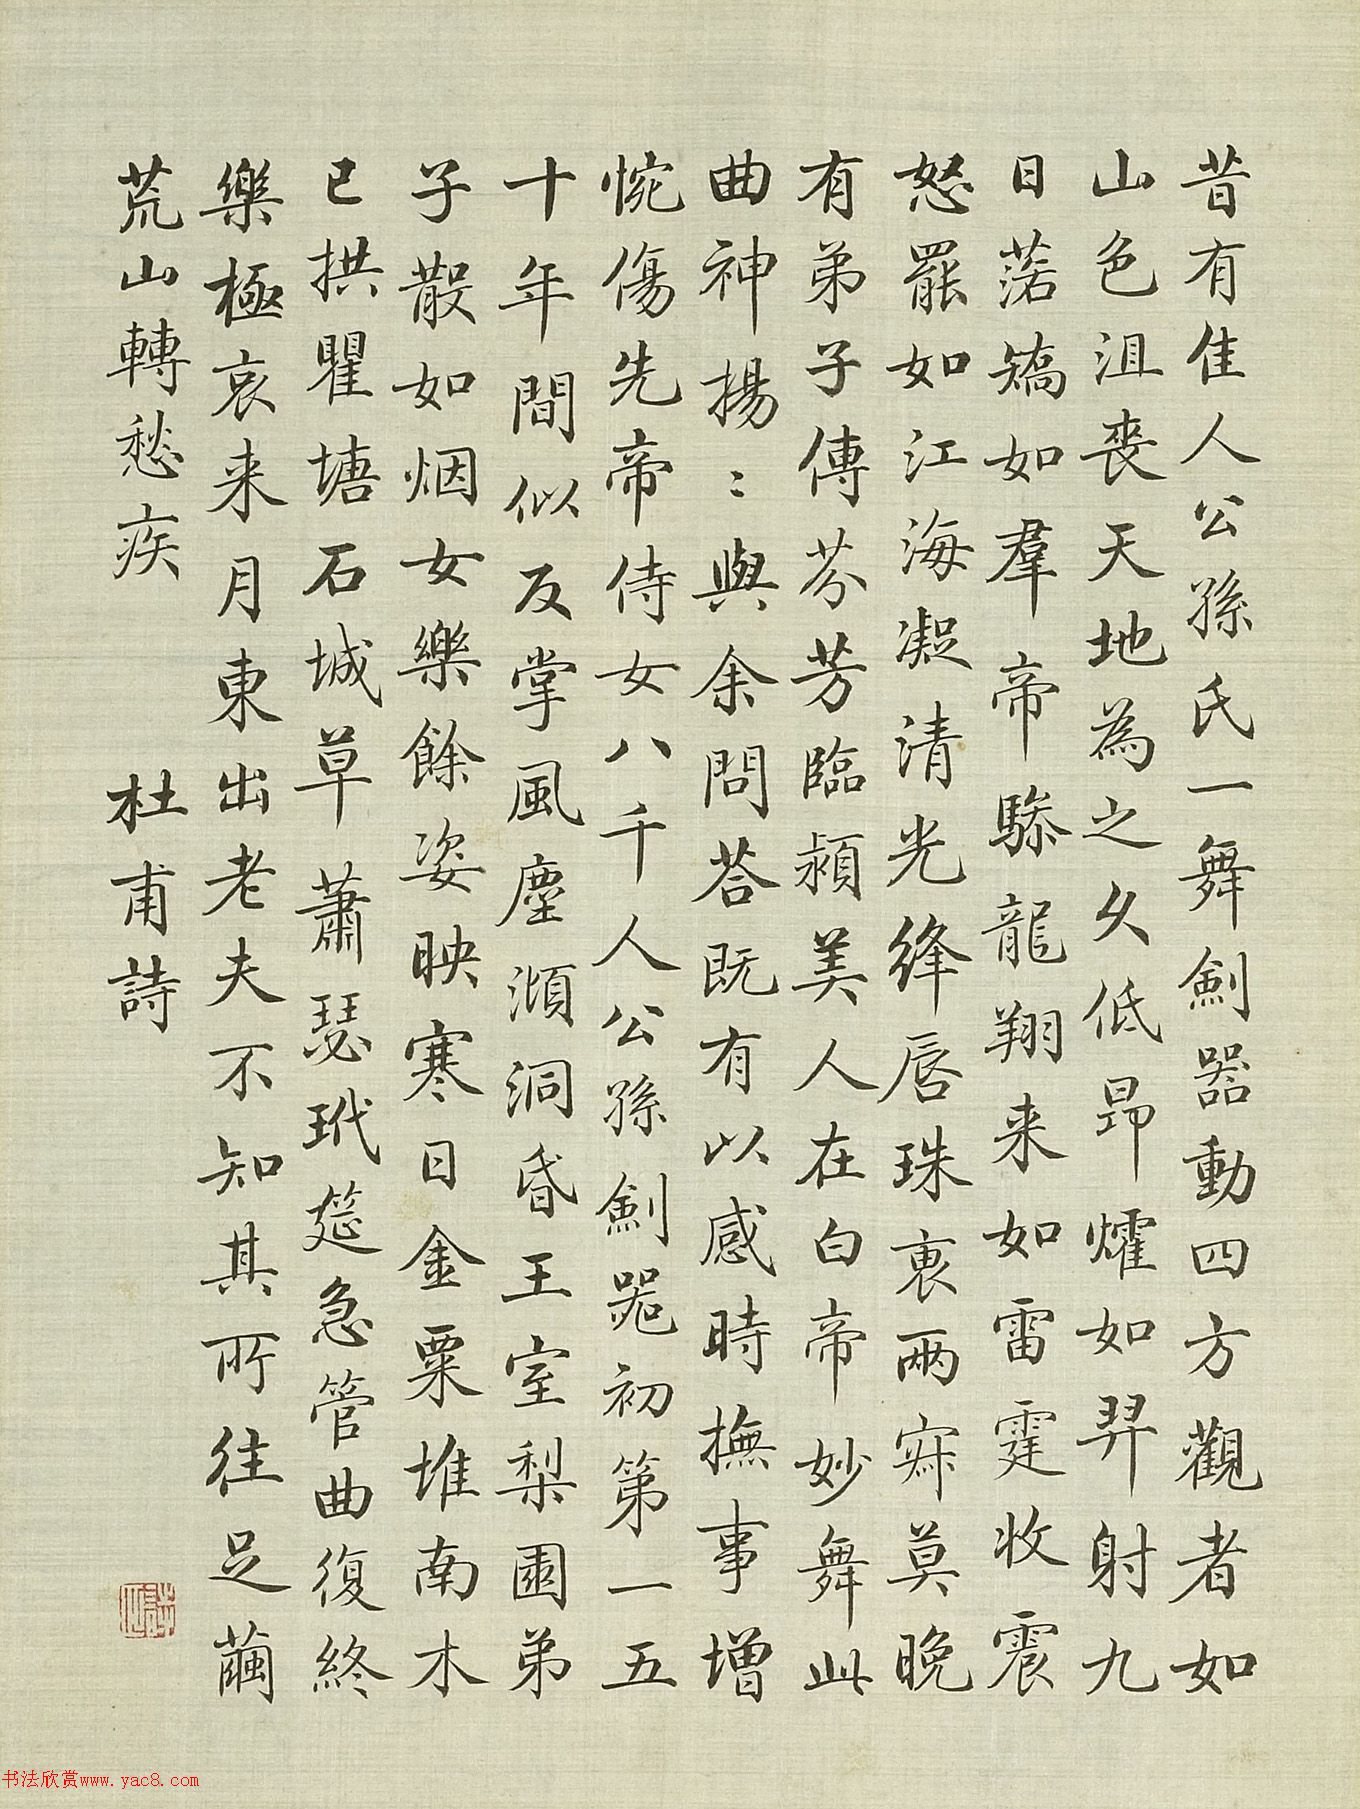 昔有佳人公孫氏一舞劍器動四方觀者如
山色沮喪天地為之久低昂㸌如羿射九
日落矯如羣帝驂龍翔来如雷霆收震
怒罷如江海凝清光絳唇珠褏兩寂莫晚
有弟子傳芬芳臨潁美人在白帝妙舞此
曲神揚〻與余問荅既有以感時撫事增
惋傷先帝侍女八千人公孫劍器初第一五
十年間似反掌風塵澒洞昏王室梨園弟
子散如烟女樂餘姿映寒日金粟堆南木
已拱瞿塘石城草蕭瑟玳筵急管曲復終
樂極哀来月東出老夫不知其所往足繭
荒山轉愁疾 杜甫詩
书法欣赏www.yac8.com